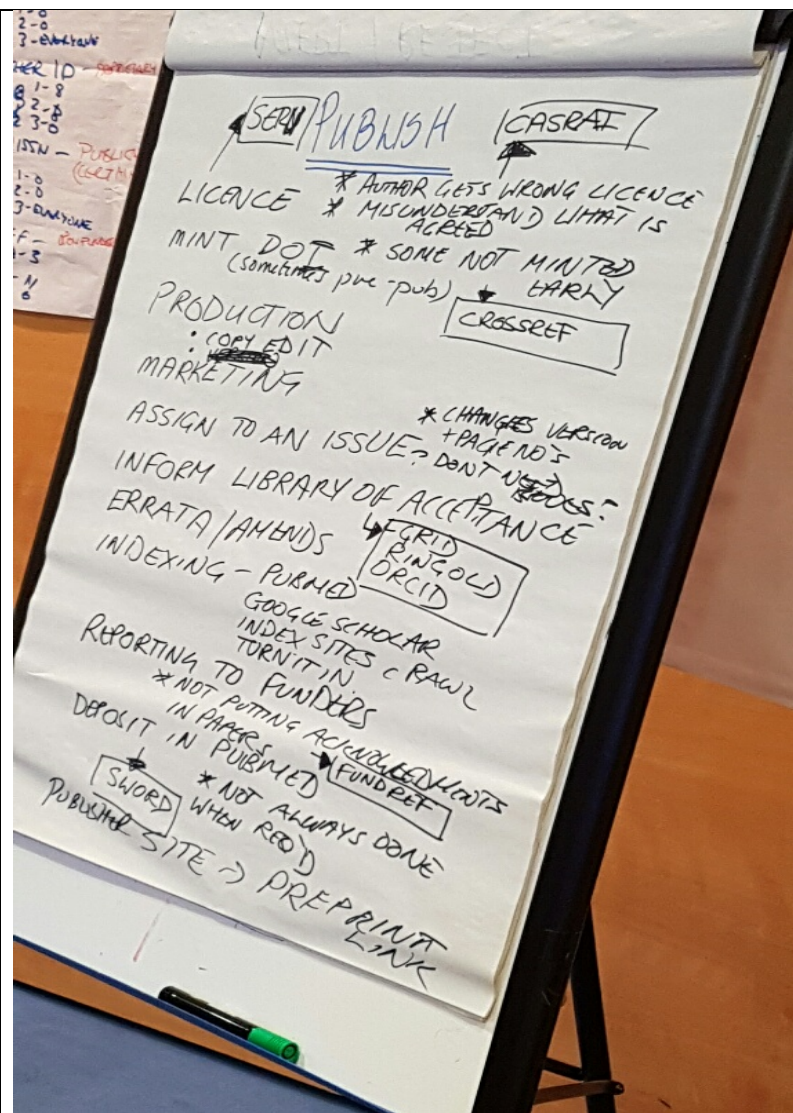 1-0
2-0
3-EVERYONE
1-8
2-8
3-0
ISSN - PUBLIC
1-0
2-0
3-EVERYONE
PUBLISH
CASRAI
LICENCE
* AUTHOR GETS WRONG LICENCE
* MISUNDERSTAND WHAT IS
AGREED
MINT DOI
* SOME NOT MINTED
EARLY
(sometimes pre-pub)
CROSSREF
PRODUCTION
: COPY EDIT
MARKETING
* CHANGES VERSION
+ PAGE NO'S
ASSIGN TO AN ISSUE? DONT NEED
INFORM LIBRARY OF ACCEPTANCE
ERRATA/AMENDS
GRID
RINGOLD
ORCID
INDEXING - PUBMED
GOOGLE SCHOLAR
INDEX SITES CRAWL
TURNITIN
REPORTING TO FUNDERS
* NOT PUTTING ACKNOWLEDMENTS
IN PAPERS
FUNDREF
DEPOSIT IN PUBMED
SWORD
* NOT ALWAYS DONE
WHEN REQ'D
PUBLISHER SITE -> PREPRINT
LINK